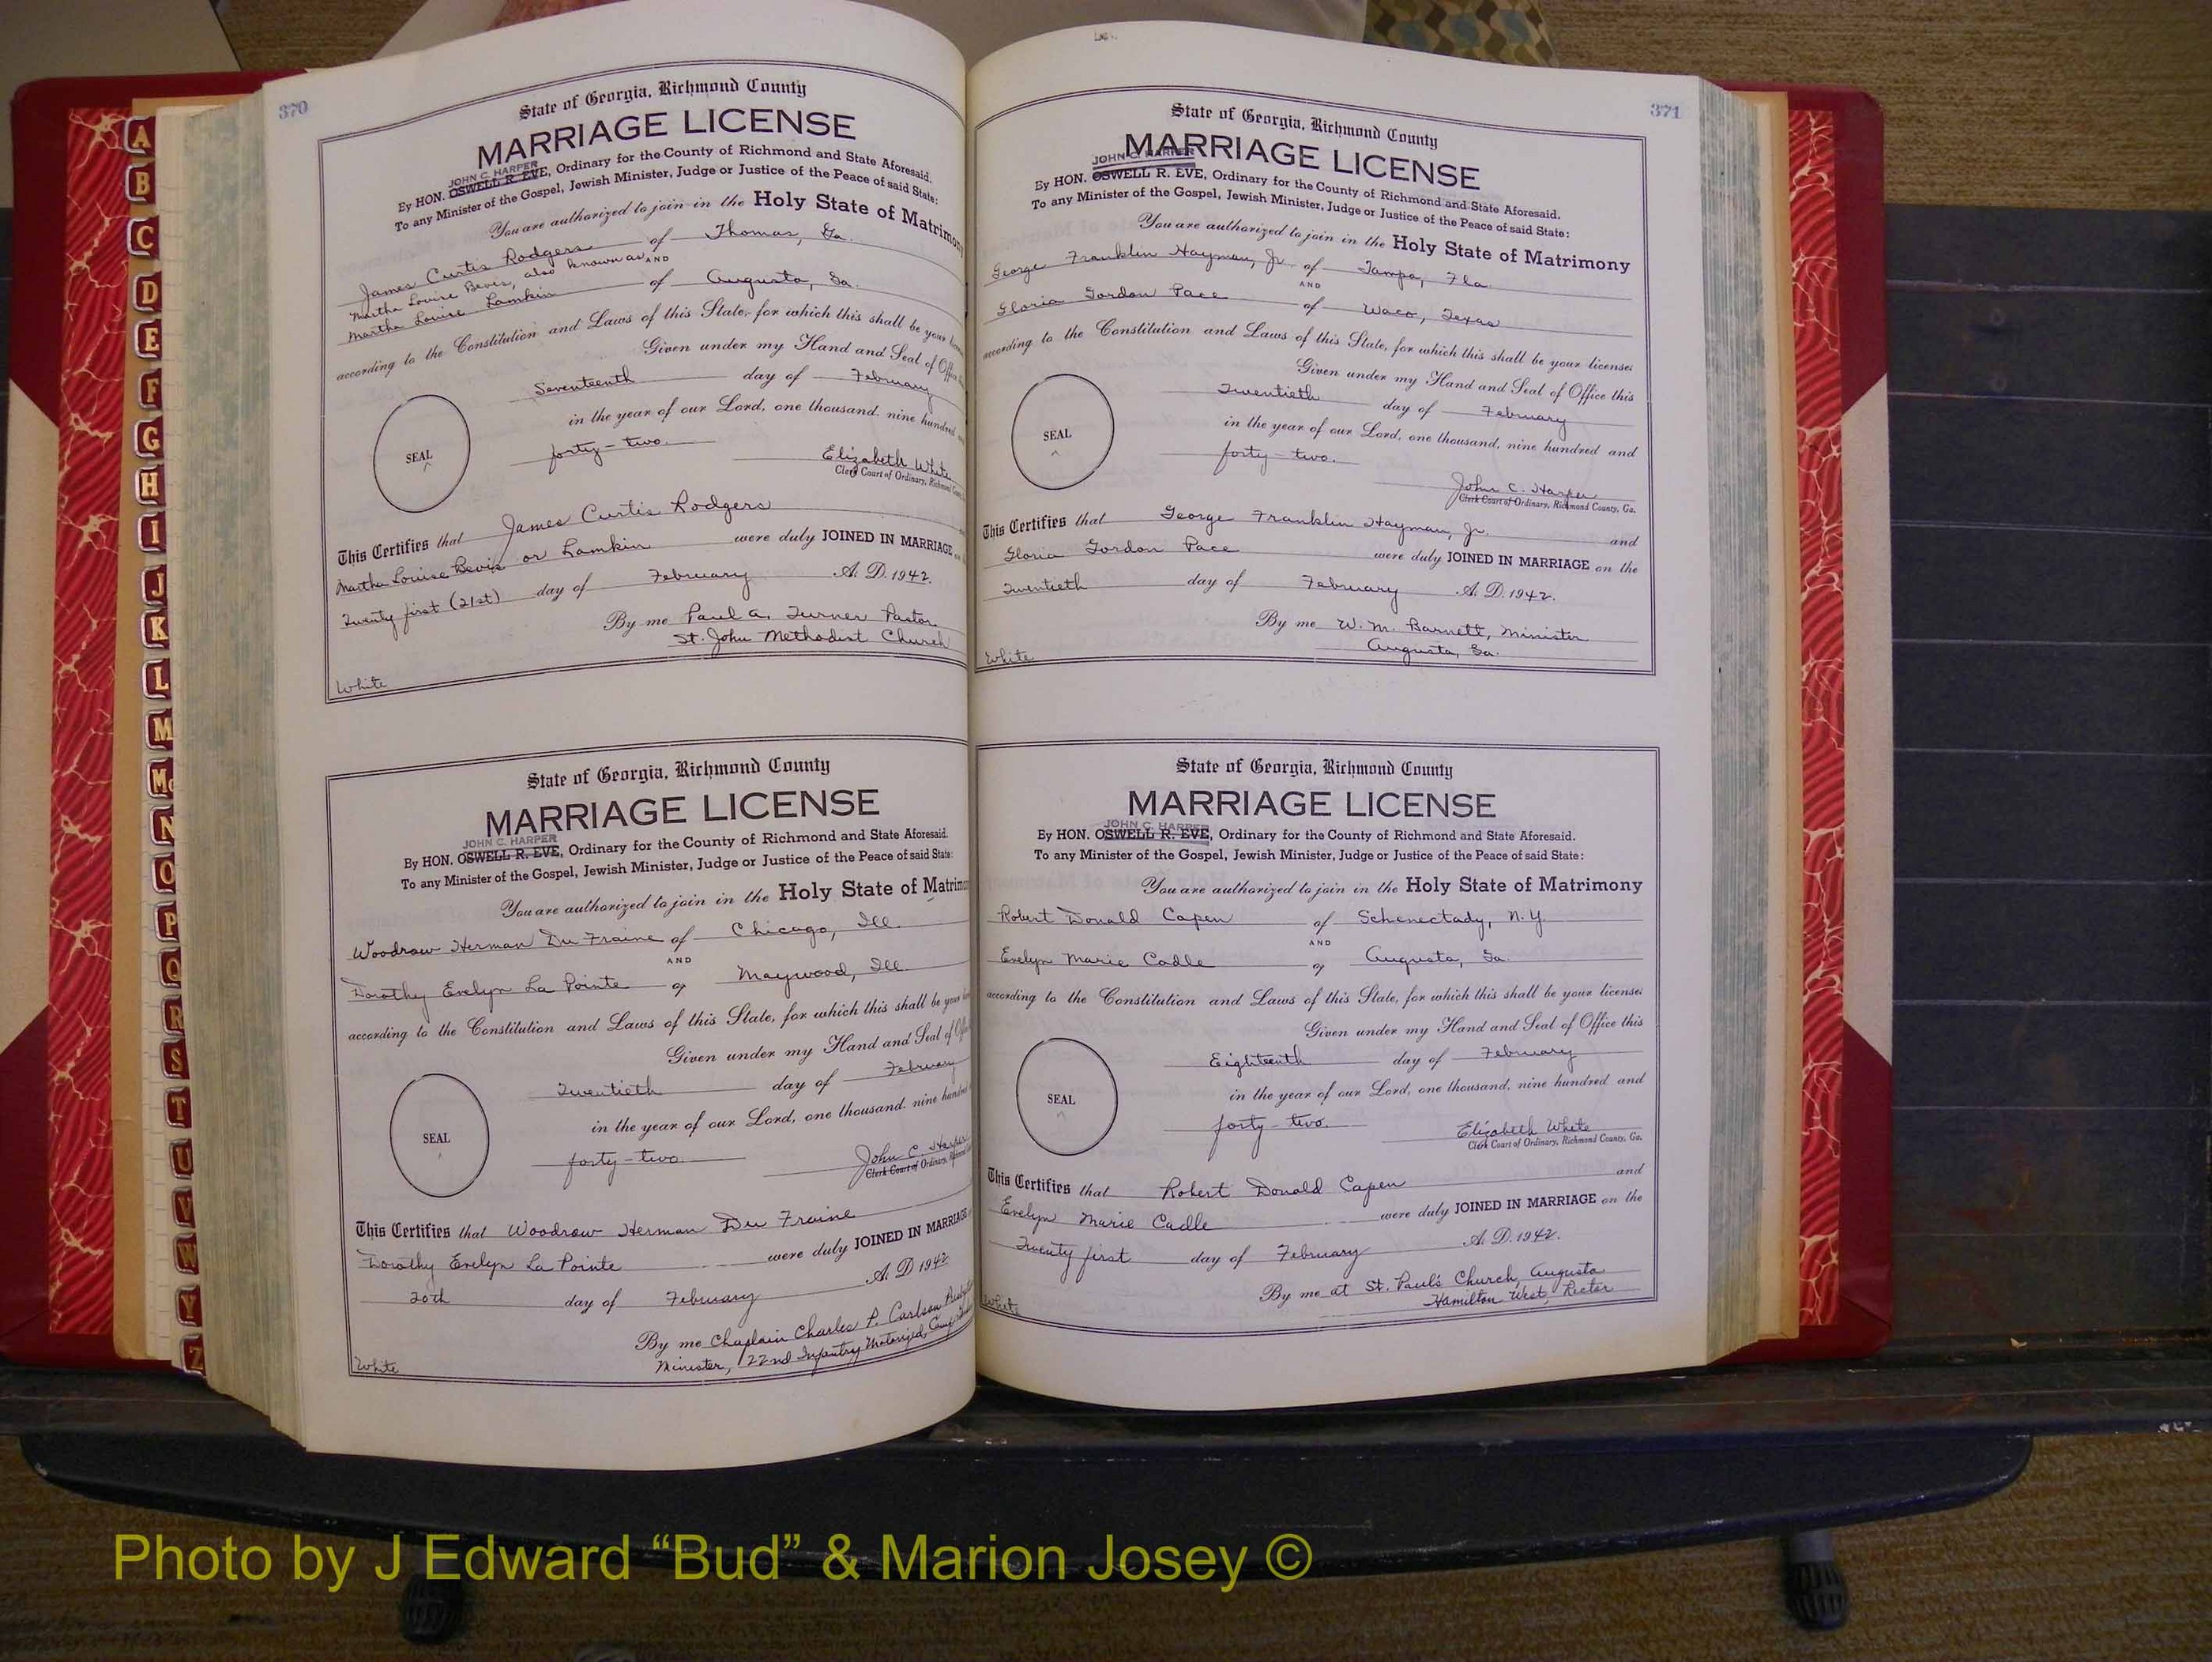 370
State of Georgia, Richmond County
MARRIAGE LICENSE
JOHN C. HARPER
By HON. OSWELL R. EVE, Ordinary for the County of Richmond and State Aforesaid.
To any Minister of the Gospel, Jewish Minister, Judge or Justice of the Peace of said State:
You are authorized to join in the Holy State of Matrimony
James Curtis Rodgers of Thomas, Ga.
Martha Louise Bevis, also known as AND
Martha Louise Lamkin of Augusta, Ga.
according to the Constitution and Laws of this State, for which this shall be your
Given under my Hand and Seal of Office
Seventeenth day of February
in the year of our Lord, one thousand, nine hundred
SEAL
forty-two.
Elizabeth White
Clerk Court of Ordinary, Richmond
This Certifies that James Curtis Rodgers
Martha Louise Bevis or Lamkin were duly JOINED IN MARRIAGE
Twenty first (21st) day of February A. D. 1942.
By me Paul A. Turner Pastor
St. John Methodist Church
White
State of Georgia, Richmond County
MARRIAGE LICENSE
JOHN C. HARPER
By HON. OSWELL R. EVE, Ordinary for the County of Richmond and State Aforesaid.
To any Minister of the Gospel, Jewish Minister, Judge or Justice of the Peace of said State:
You are authorized to join in the Holy State of Matrimony
Woodrow Herman Du Fraine of Chicago, Ill.
AND
Dorothy Evelyn La Pointe of Maywood, Ill.
according to the Constitution and Laws of this State, for which this shall be your
Given under my Hand and Seal of
Twentieth day of February
in the year of our Lord, one thousand, nine hundred
SEAL
forty-two.
John C. Harper
Clerk Court of Ordinary,
This Certifies that Woodrow Herman Du Fraine
Dorothy Evelyn La Pointe were duly JOINED IN MARRIAGE
20th day of February A. D. 1942
By me Chaplain Charles P. Carlson
Minister, 22nd Infantry Motorized, Camp
White
371
State of Georgia, Richmond County
MARRIAGE LICENSE
JOHN C. HARPER
By HON. OSWELL R. EVE, Ordinary for the County of Richmond and State Aforesaid.
To any Minister of the Gospel, Jewish Minister, Judge or Justice of the Peace of said State:
You are authorized to join in the Holy State of Matrimony
George Franklin Hayman, Jr. of Tampa, Fla.
AND
Gloria Gordon Pace of Waco, Texas
according to the Constitution and Laws of this State, for which this shall be your license:
Given under my Hand and Seal of Office this
Twentieth day of February
in the year of our Lord, one thousand, nine hundred and
SEAL
forty-two.
John C. Harper
Clerk Court of Ordinary, Richmond County, Ga.
This Certifies that George Franklin Hayman, Jr. and
Gloria Gordon Pace were duly JOINED IN MARRIAGE on the
Twentieth day of February A. D. 1942.
By me W. M. Barnett, Minister
Augusta, Ga.
White
State of Georgia, Richmond County
MARRIAGE LICENSE
JOHN C. HARPER
By HON. OSWELL R. EVE, Ordinary for the County of Richmond and State Aforesaid.
To any Minister of the Gospel, Jewish Minister, Judge or Justice of the Peace of said State:
You are authorized to join in the Holy State of Matrimony
Robert Donald Capen of Schenectady, N.Y.
AND
Evelyn Marie Cadle of Augusta, Ga.
according to the Constitution and Laws of this State, for which this shall be your license:
Given under my Hand and Seal of Office this
Eighteenth day of February
in the year of our Lord, one thousand, nine hundred and
SEAL
forty-two.
Elizabeth White
Clerk Court of Ordinary, Richmond County, Ga.
This Certifies that Robert Donald Capen and
Evelyn Marie Cadle were duly JOINED IN MARRIAGE on the
Twenty first day of February A. D. 1942.
By me at St. Paul's Church, Augusta
Hamilton West, Rector
White
A
B
C
D
E
F
G
H
I
J
K
L
M
Mc
N
O
P
Q
R
S
T
U
V
W
Y
Z
Photo by J Edward “Bud” & Marion Josey ©